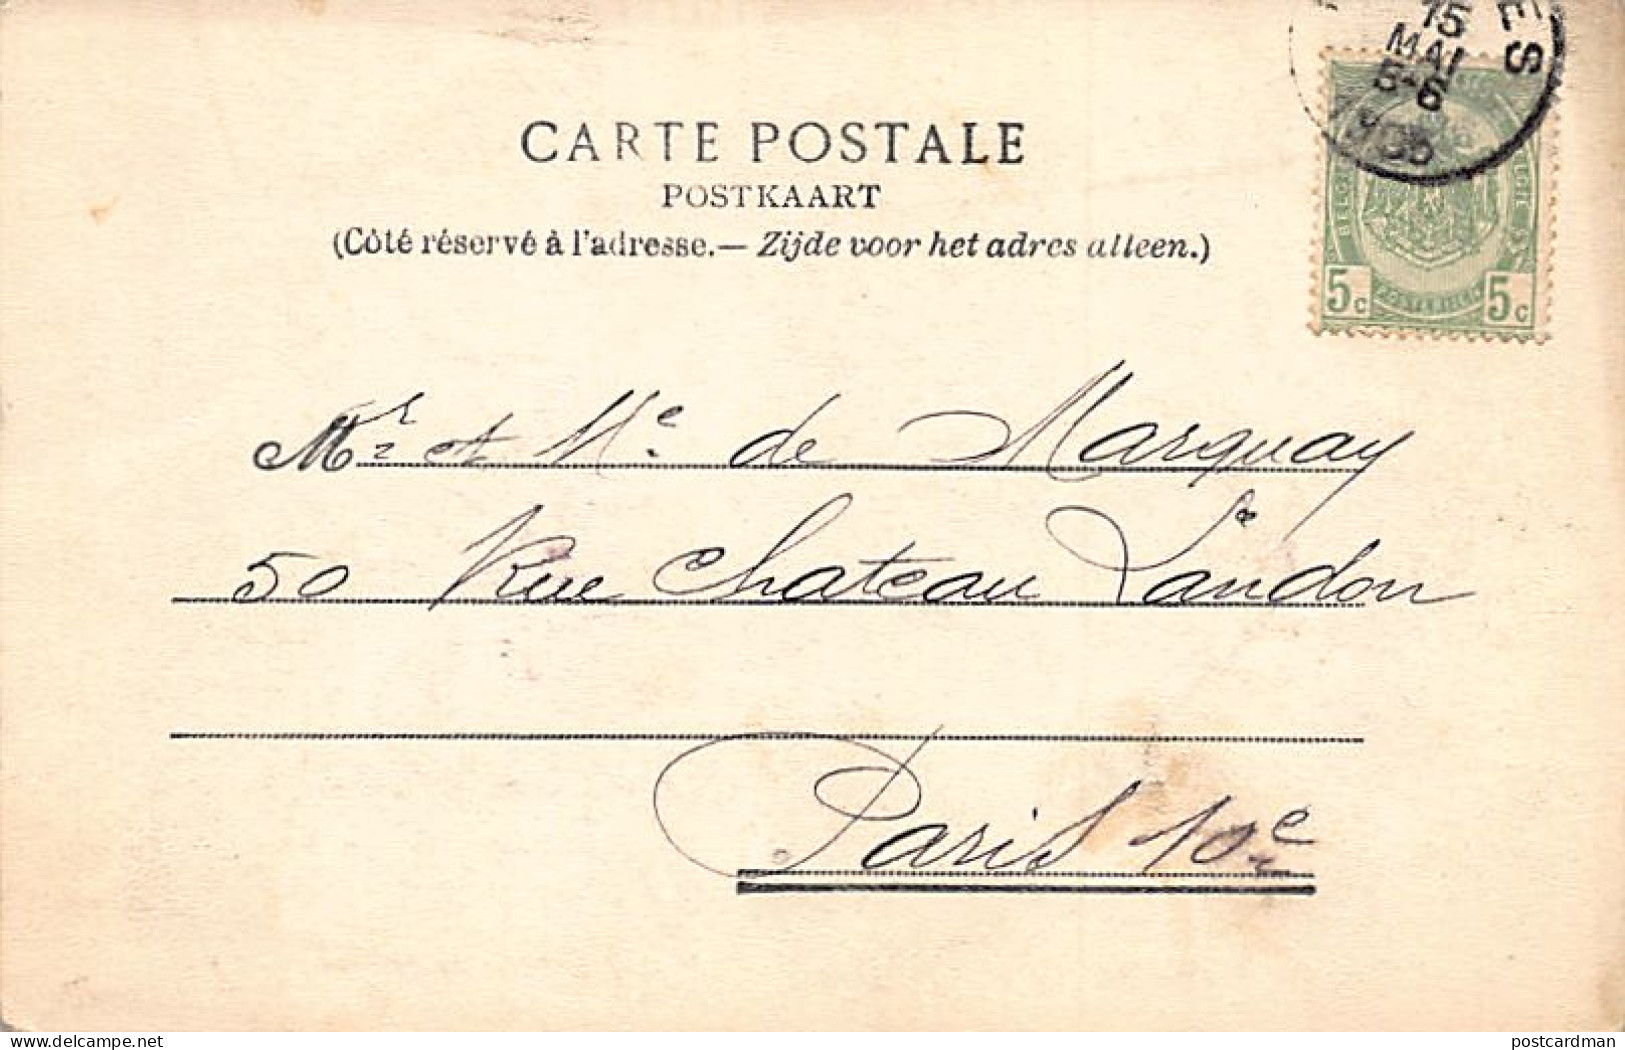 CARTE POSTALE
POSTKAART
(Côté réservé à l'adresse.— Zijde voor het adres alleen.)
ES
15
MAI
5-6
5c 5c
Mr et Me de Marquay
50 Rue Chateau Landon
Paris 10e
delcampe.net
postcardman